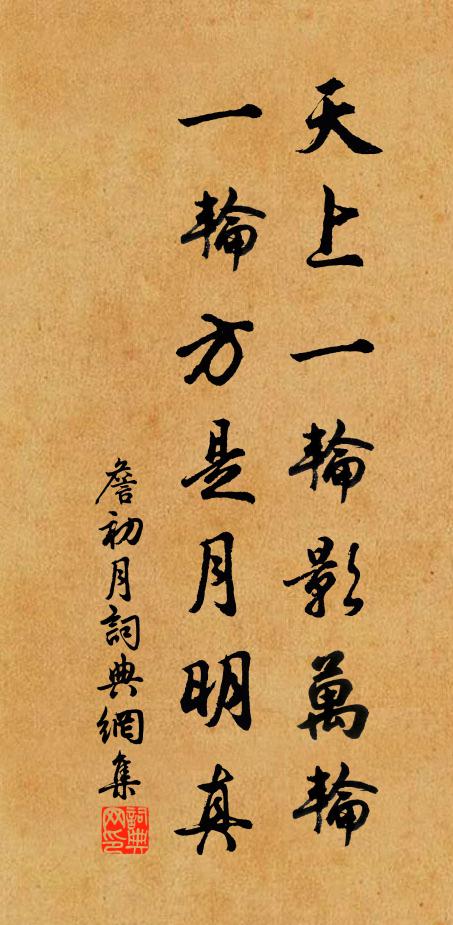 天上一輪影萬輪
一輪方是月明真
詹初月詞典網集
詞典網印